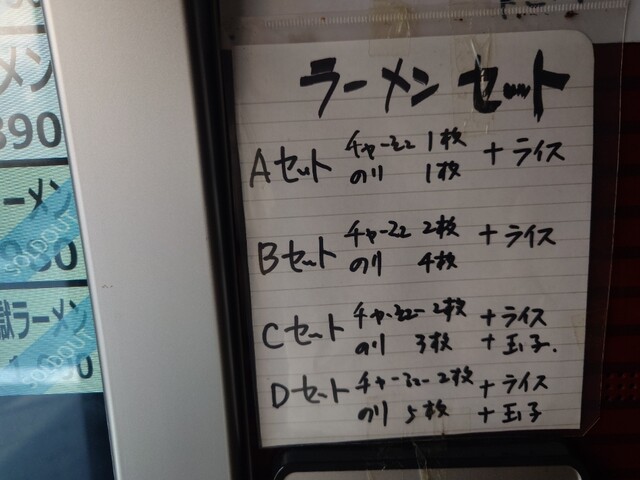 メン
890
ーメン
獄ラーメン
ラーメン セット
Aセット チャーシュー 1枚 + ライス
のり 1枚
Bセット チャーシュー 2枚 + ライス
のり 4枚
Cセット チャーシュー 2枚 + ライス
のり 3枚 + 玉子.
Dセット チャーシュー 2枚 + ライス
のり 5枚 + 玉子